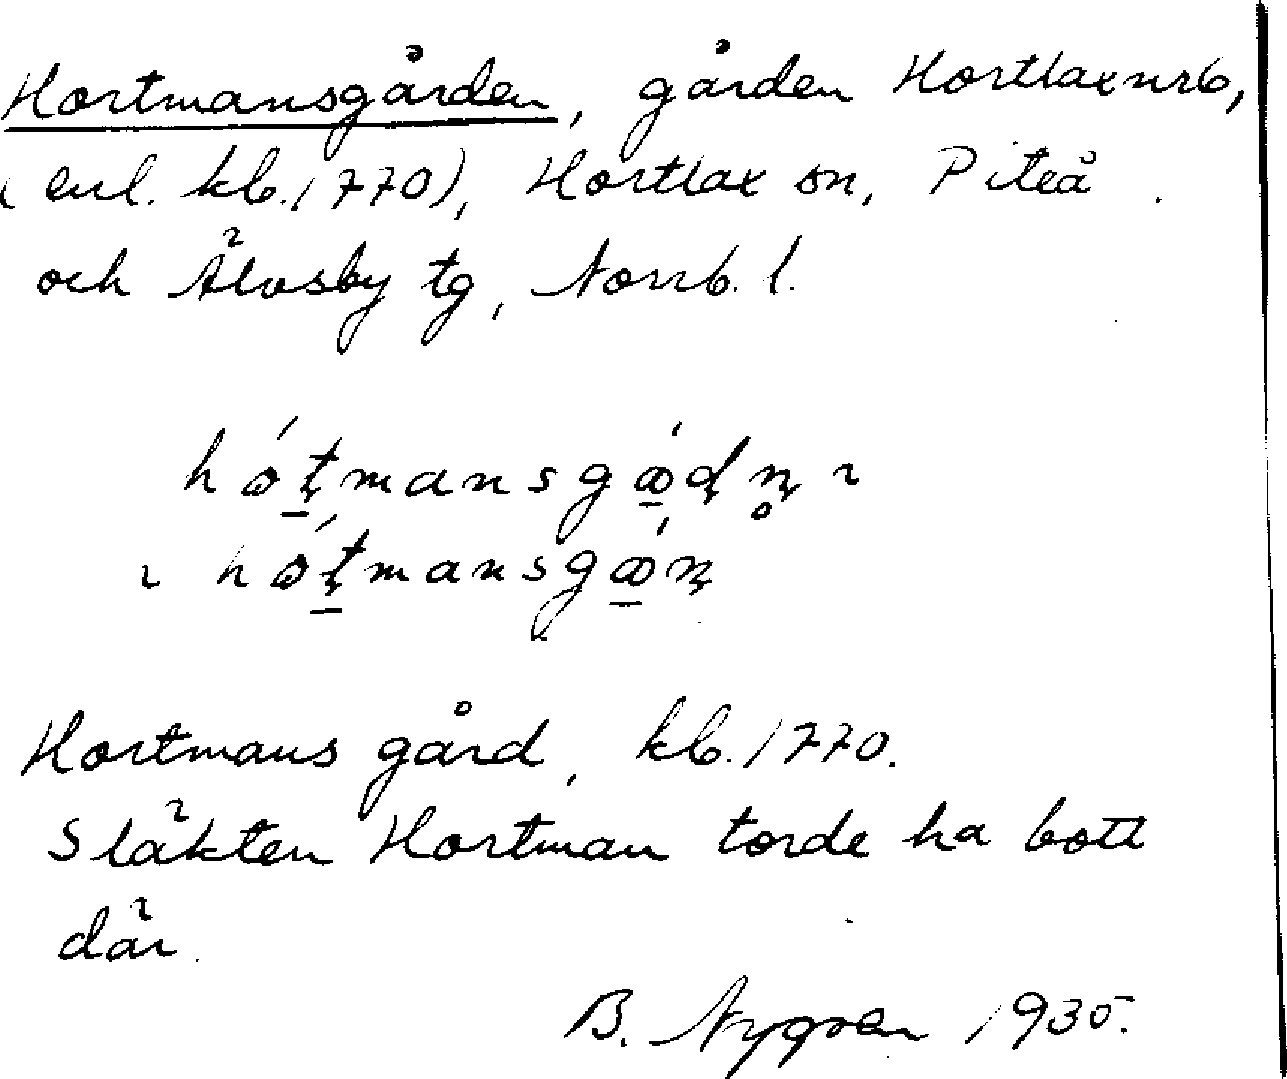 Hortmansgården, gården Hortlax nr 6,
(enl. kb. 1770), Hortlax sn, Piteå
och Älvsby tg, Norrb. l.
hó̤ṭmansgǿḍṇ̥ ~
~ hó̤ṭmansgǿṇ
Hortmans gård, kb. 1770.
Släkten Hortman torde ha bott
där.
B. Nygren 1935.